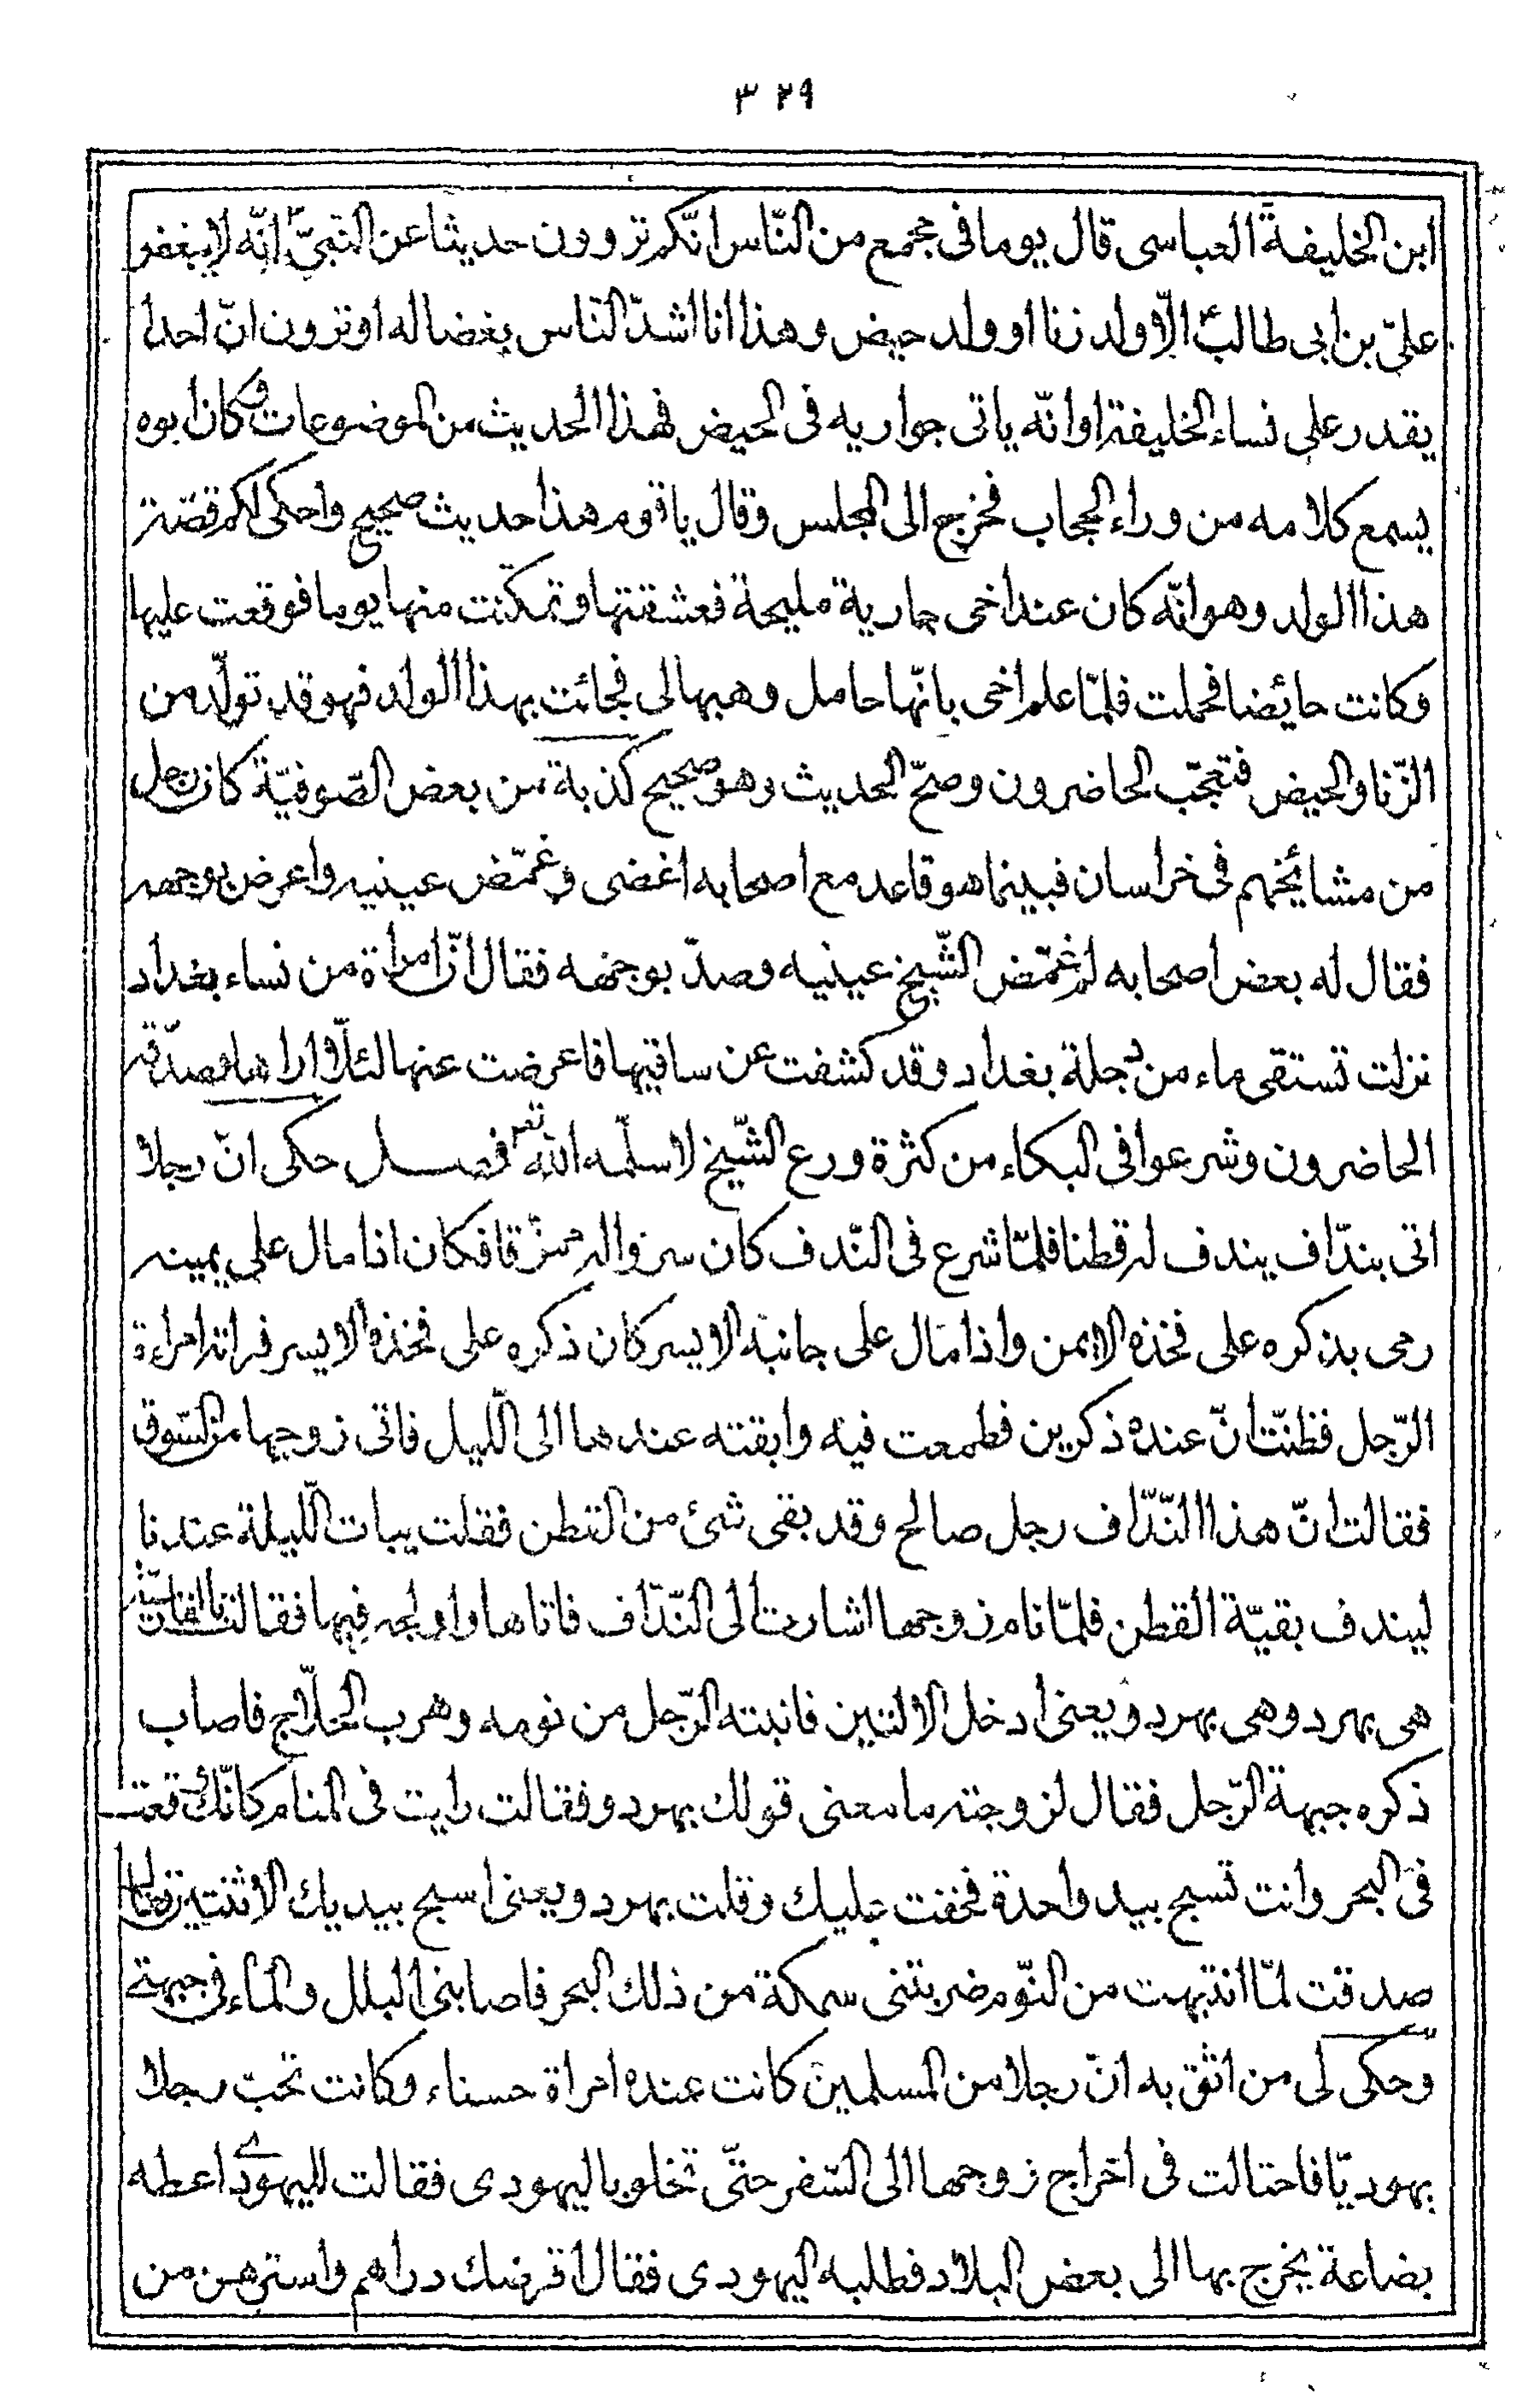 ٣٢٩
ابن الخليفة العباسى قال يوما فى مجمع من النّاس انّكم تروون حديثا عن النبىّ ص انّه لا يبغض
علىّ بن ابى طالب ع الّا ولد زنا او ولد حيض وهذا انا اشدّ النّاس بغضا له او ترون انّ احدا
يقدر على نساء الخليفة او انّه ياتى جواريه فى الحيض فهذا الحديث من الموضوعات وكان ابوه
يسمع كلامه من وراء الحجاب فخرج الى المجلس وقال يا قوم هذا حديث صحيح واحكى لكم قصّة
هذا الولد وهو انّه كان عند اخى جارية مليحة فعشقتها وتمكّنت منها يوما فوقعت عليها
وكانت حائضا فحملت فلمّا علم اخى بانّها حامل وهبها لى فجائت بهذا الولد فهو قد تولّد من
الزّنا والحيض فتعجّب الحاضرون وصحّ الحديث وهو صحيح كذبة من بعض الصّوفيّة كان رجل
من مشائخهم فى خراسان فبينما هو قاعد مع اصحابه اغضى وغمّض عينيه واعرض بوجهه
فقال له بعض اصحابه لم غمّض الشّيخ عينيه وصدّ بوجهه فقال انّ امراة من نساء بغداد
نزلت تستقى ماء من دجلة بغداد وقد كشفت عن ساقيها فاعرضت عنها لئلّا اراها وصدّقه
الحاضرون وشرعوا فى البكاء من كثرة ورع الشّيخ لا سلّمه الله تع فصل حكى انّ رجلا
اتى بندّاف يندف له قطنا فلمّا شرع فى النّدف كان سرواله ممزّقا فكان اذا مال على يمينه
رمى بذكره على فخذه الايمن واذا مال على جانبه الايسر كان ذكره على فخذه الايسر فراته امراءة
الرّجل فظنّت انّ عنده ذكرين فطمعت فيه وابقته عندها الى اللّيل فاتى زوجها من السّوق
فقالت انّ هذا النّدّاف رجل صالح وقد بقى شئ من القطن فقلت يبات اللّيلة عندنا
ليندف بقيّة القطن فلمّا نام زوجها اشارت الى النّدّاف فاتاها واولجه فيها فقالت بالفارسيّة
هى بهردو هى بهردو يعنى ادخل الاثنين فانبته الرّجل من نومه وهرب الحلّاج فاصاب
ذكره جبهة الرّجل فقال لزوجته ما معنى قولك بهردو فقالت رايت فى المنام كانّك وقعت
فى البحر وانت تسبح بيد واحدة فخفت عليك وقلت بهردو يعنى اسبح بيديك الاثنتين فقال
صدقت لمّا انتبهت من النّوم ضربتنى سمكة من ذلك البحر فاصابنى البلل والماء فى جبهتى
وحكى لى من اثق به انّ رجلا من المسلمين كانت عنده امراة حسناء وكانت تحبّ رجلا
يهوديّا فاحتالت فى اخراج زوجها الى السّفر حتّى تخلو باليهودى فقالت لليهودى اعطه
بضاعة يخرج بها الى بعض البلاد فطلبه اليهودى فقال اقرضك دراهم واسترهن من